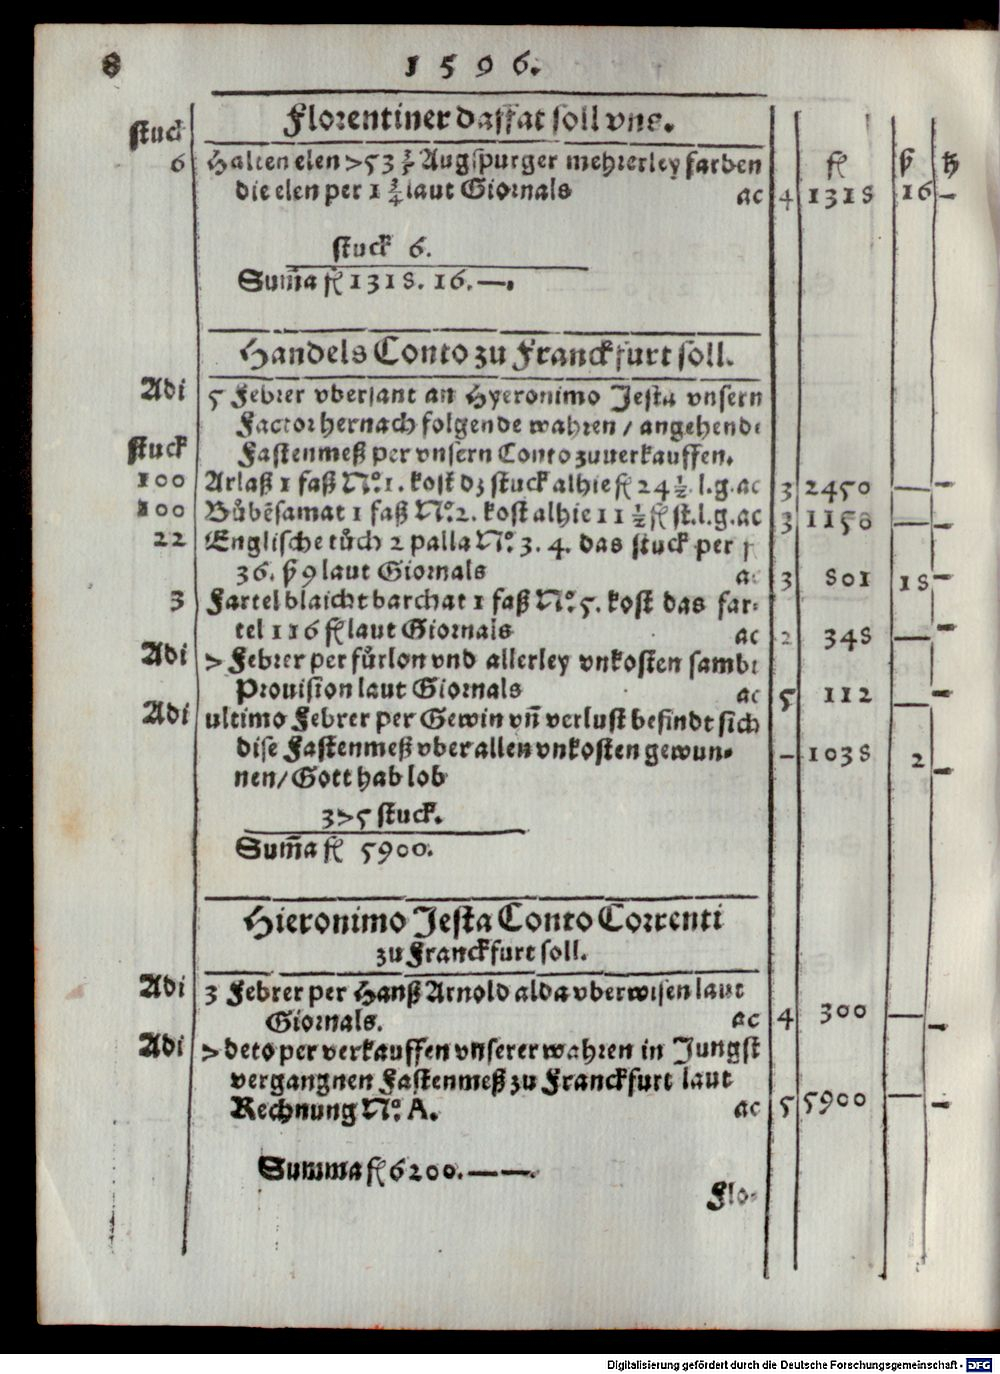 8 1596.
Florentiner daffat soll vns.
stuck fl ß hl
6 Halten elen 753 3/5 Augspurger mehrerley farben
die elen per 1 3/4 laut Giornals ac 4 1318 16 —
stuck 6.
Sum̄a fl 1318. 16. —.
Handels Conto zu Franckfurt soll.
Adi 5 Febrer vbersant an Hyeronimo Jesta vnsern
Factor hernach folgende wahren / angehende
stuck Fastenmeß per vnsern Conto zuuerkauffen.
100 Arlaß 1 faß No. 1. kost dz stuck alhie fl 24 1/2. l.g. ac 3 2450 — —
100 Bůbēsamat 1 faß No. 2. kost alhie 11 1/2 fl st. l.g. ac 3 1150 — —
22 Englische tůch 2 palla No. 3. 4. das stuck per f
36. ß 9 laut Giornals ac 3 801 18 —
3 Fartel blaicht barchat 1 faß No. 5. kost das far-
tel 116 fl laut Giornals ac 2 348 — —
Adi 7 Febrer per fůrlon vnd allerley vnkosten sambt
Prouision laut Giornals ac 5 112 — —
Adi ultimo Febrer per Gewin vn̄ verlust befindt sich
dise Fastenmeß vber allen vnkosten gewun- — 1038 2 —
nen / Gott hab lob
375 stuck.
Sum̄a fl 5900.
Hieronimo Jesta Conto Correnti
zu Franckfurt soll.
Adi 3 Febrer per Hanß Arnold alda vberwisen laut
Giornals. ac 4 300 — —
Adi 7 deto per verkauffen vnserer wahren in Jungst
vergangnen Fastenmeß zu Franckfurt laut
Rechnung No. A. ac 5 5900 — —
Summa fl 6200. — —.
Flo-
Digitalisierung gefördert durch die Deutsche Forschungsgemeinschaft - DFG